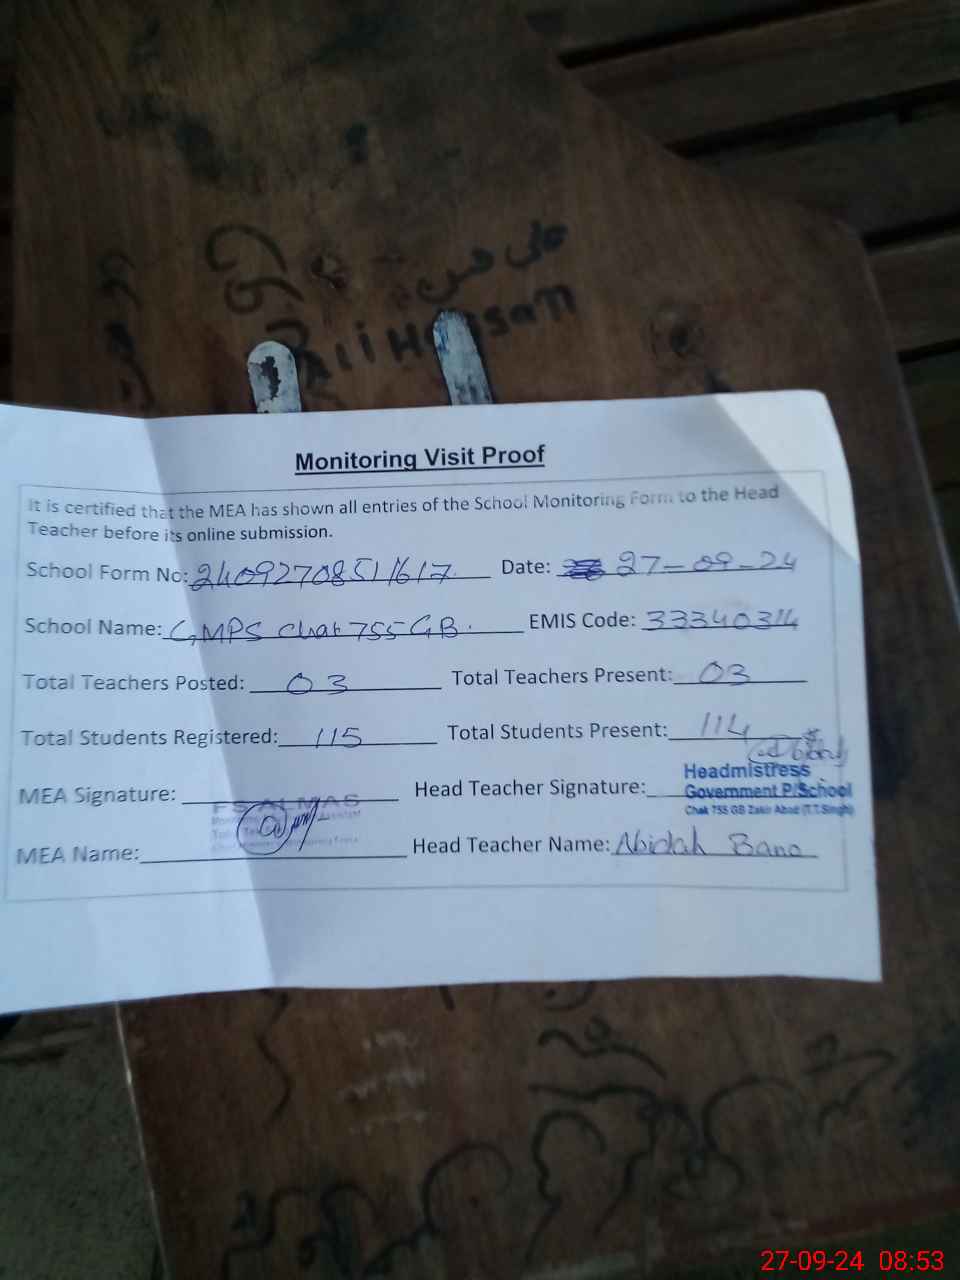 علی حسن
Ali Hassan
Monitoring Visit Proof
It is certified that the MEA has shown all entries of the School Monitoring Form to the Head
Teacher before its online submission.
School Form No: 2409270851617 Date: 27-09-24
School Name: GMPS Chak 755 GB. EMIS Code: 33340314
Total Teachers Posted: 03 Total Teachers Present: 03
Total Students Registered: 115 Total Students Present: 114
MEA Signature: Head Teacher Signature:
Headmistress
Government P/School
Chak 755 GB Zakir Abad (T.T.Singh)
MEA Name: Head Teacher Name: Abidah Bano
27-09-24 08:53